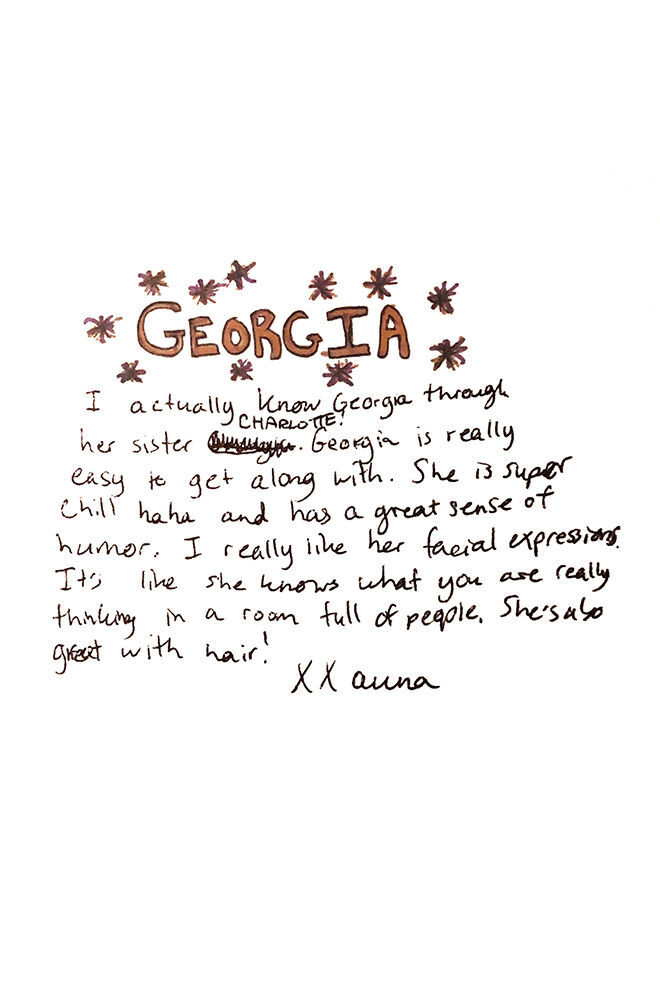 GEORGIA
I actually know Georgia through
CHARLOTTE!
her sister . Georgia is really
easy to get along with. She is super
chill haha and has a great sense of
humor. I really like her facial expressions.
It's like she knows what you are really
thinking in a room full of people. She's also
great with hair!
XX anna